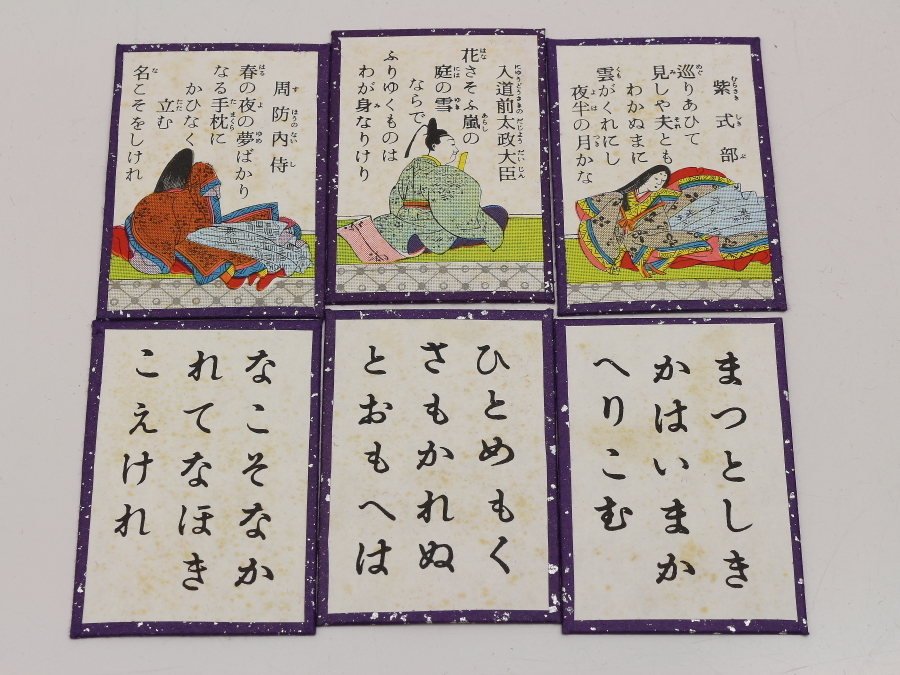 紫式部
巡りあひて
見しや夫とも
わかぬまに
雲がくれにし
夜半の月かな
入道前太政大臣
花さそふ嵐の
庭の雪
ならで
ふりゆくものは
わが身なりけり
周防内侍
春の夜の夢ばかり
なる手枕に
かひなく
立む
名こそをしけれ
まつとしき
かはいまか
へりこむ
ひとめもく
さもかれぬ
とおもへは
なこそなか
れてなほき
こえけれ